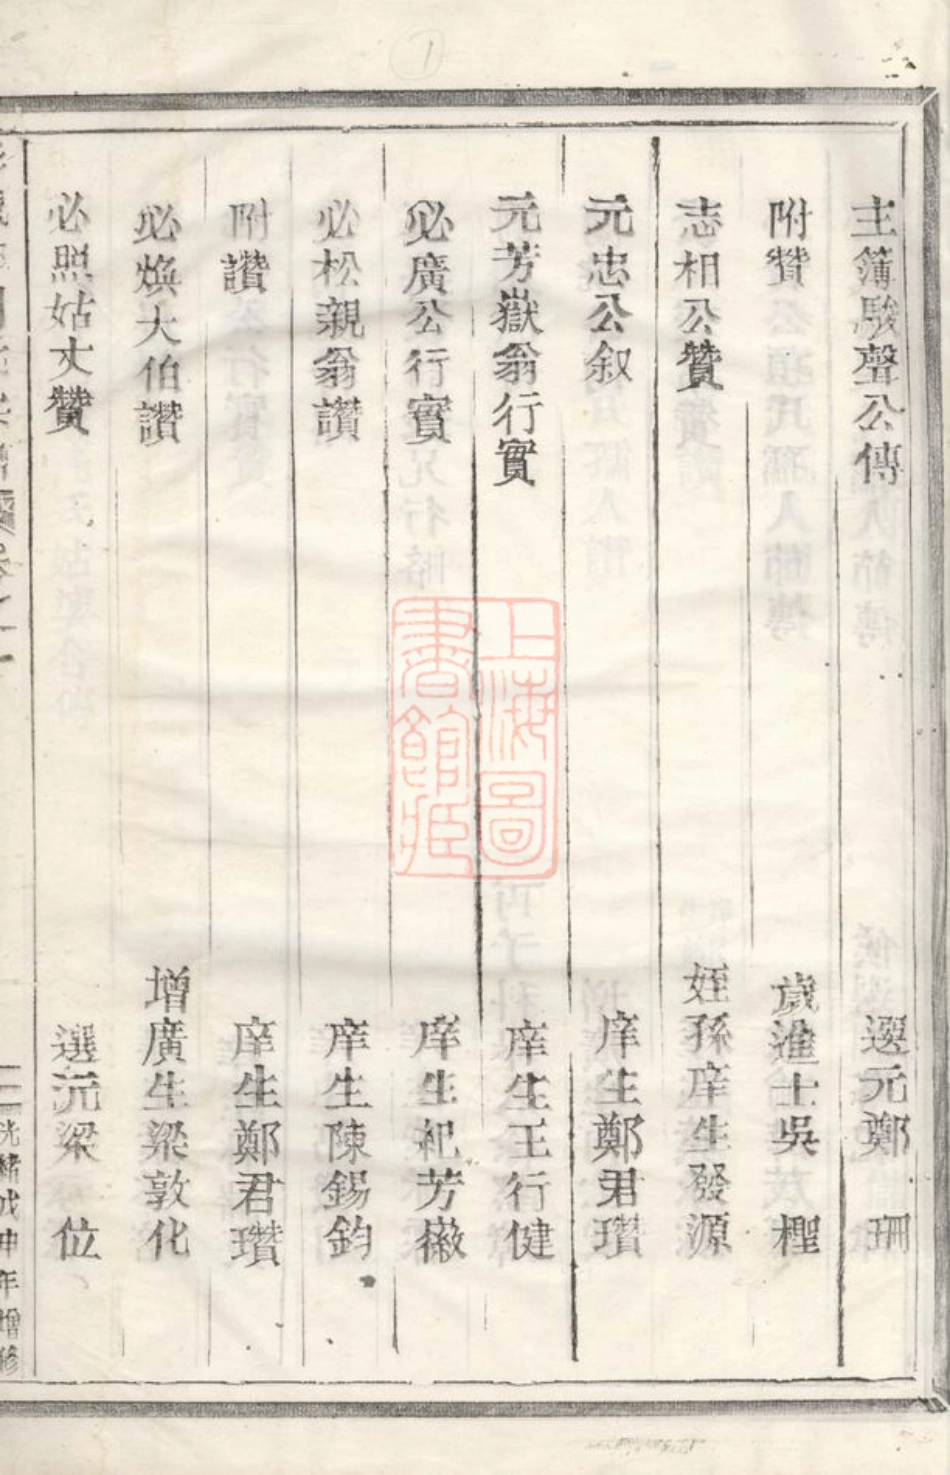 主簿駿聲公傳 選元鄭 珊
附贊 歲進士吳 桱
志相公贊 姪孫庠生發源
元忠公叙 庠生鄭君瓚
元芳嶽翁行實 庠生王行健
必廣公行實 庠生紀芳徽
必松親翁讃 庠生陳錫鈞
附讃 庠生鄭君瓚
必煥大伯讃 增廣生梁敦化
必照姑丈贊 選元梁 位
光緒戊申年增修
上海圖書館藏